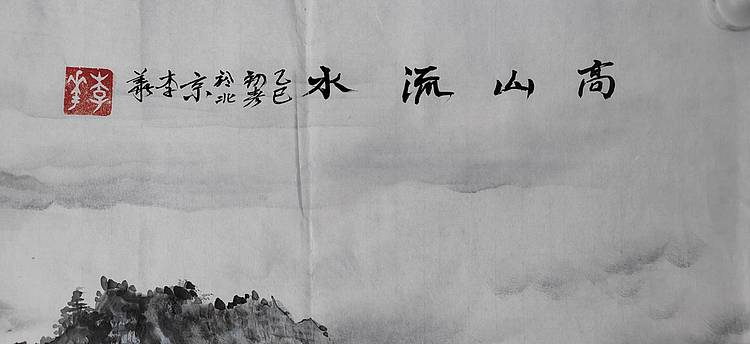 高山流水
乙巳
初
於北
京
李
李